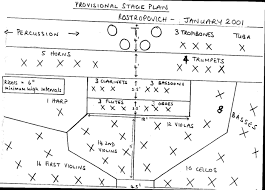 PROVISIONAL STAGE PLAN
ROSTROPOVICH - JANUARY 2001
PERCUSSION
3 TROMBONES
TUBA
5 HORNS
4 TRUMPETS
minimum high intervals
3 CLARINETS
3 BASSOONS
1 HARP
3 FLUTES
OBOES
8
BASSES
12 VIOLAS
14 2ND
VIOLINS
16 FIRST VIOLINS
10 CELLOS